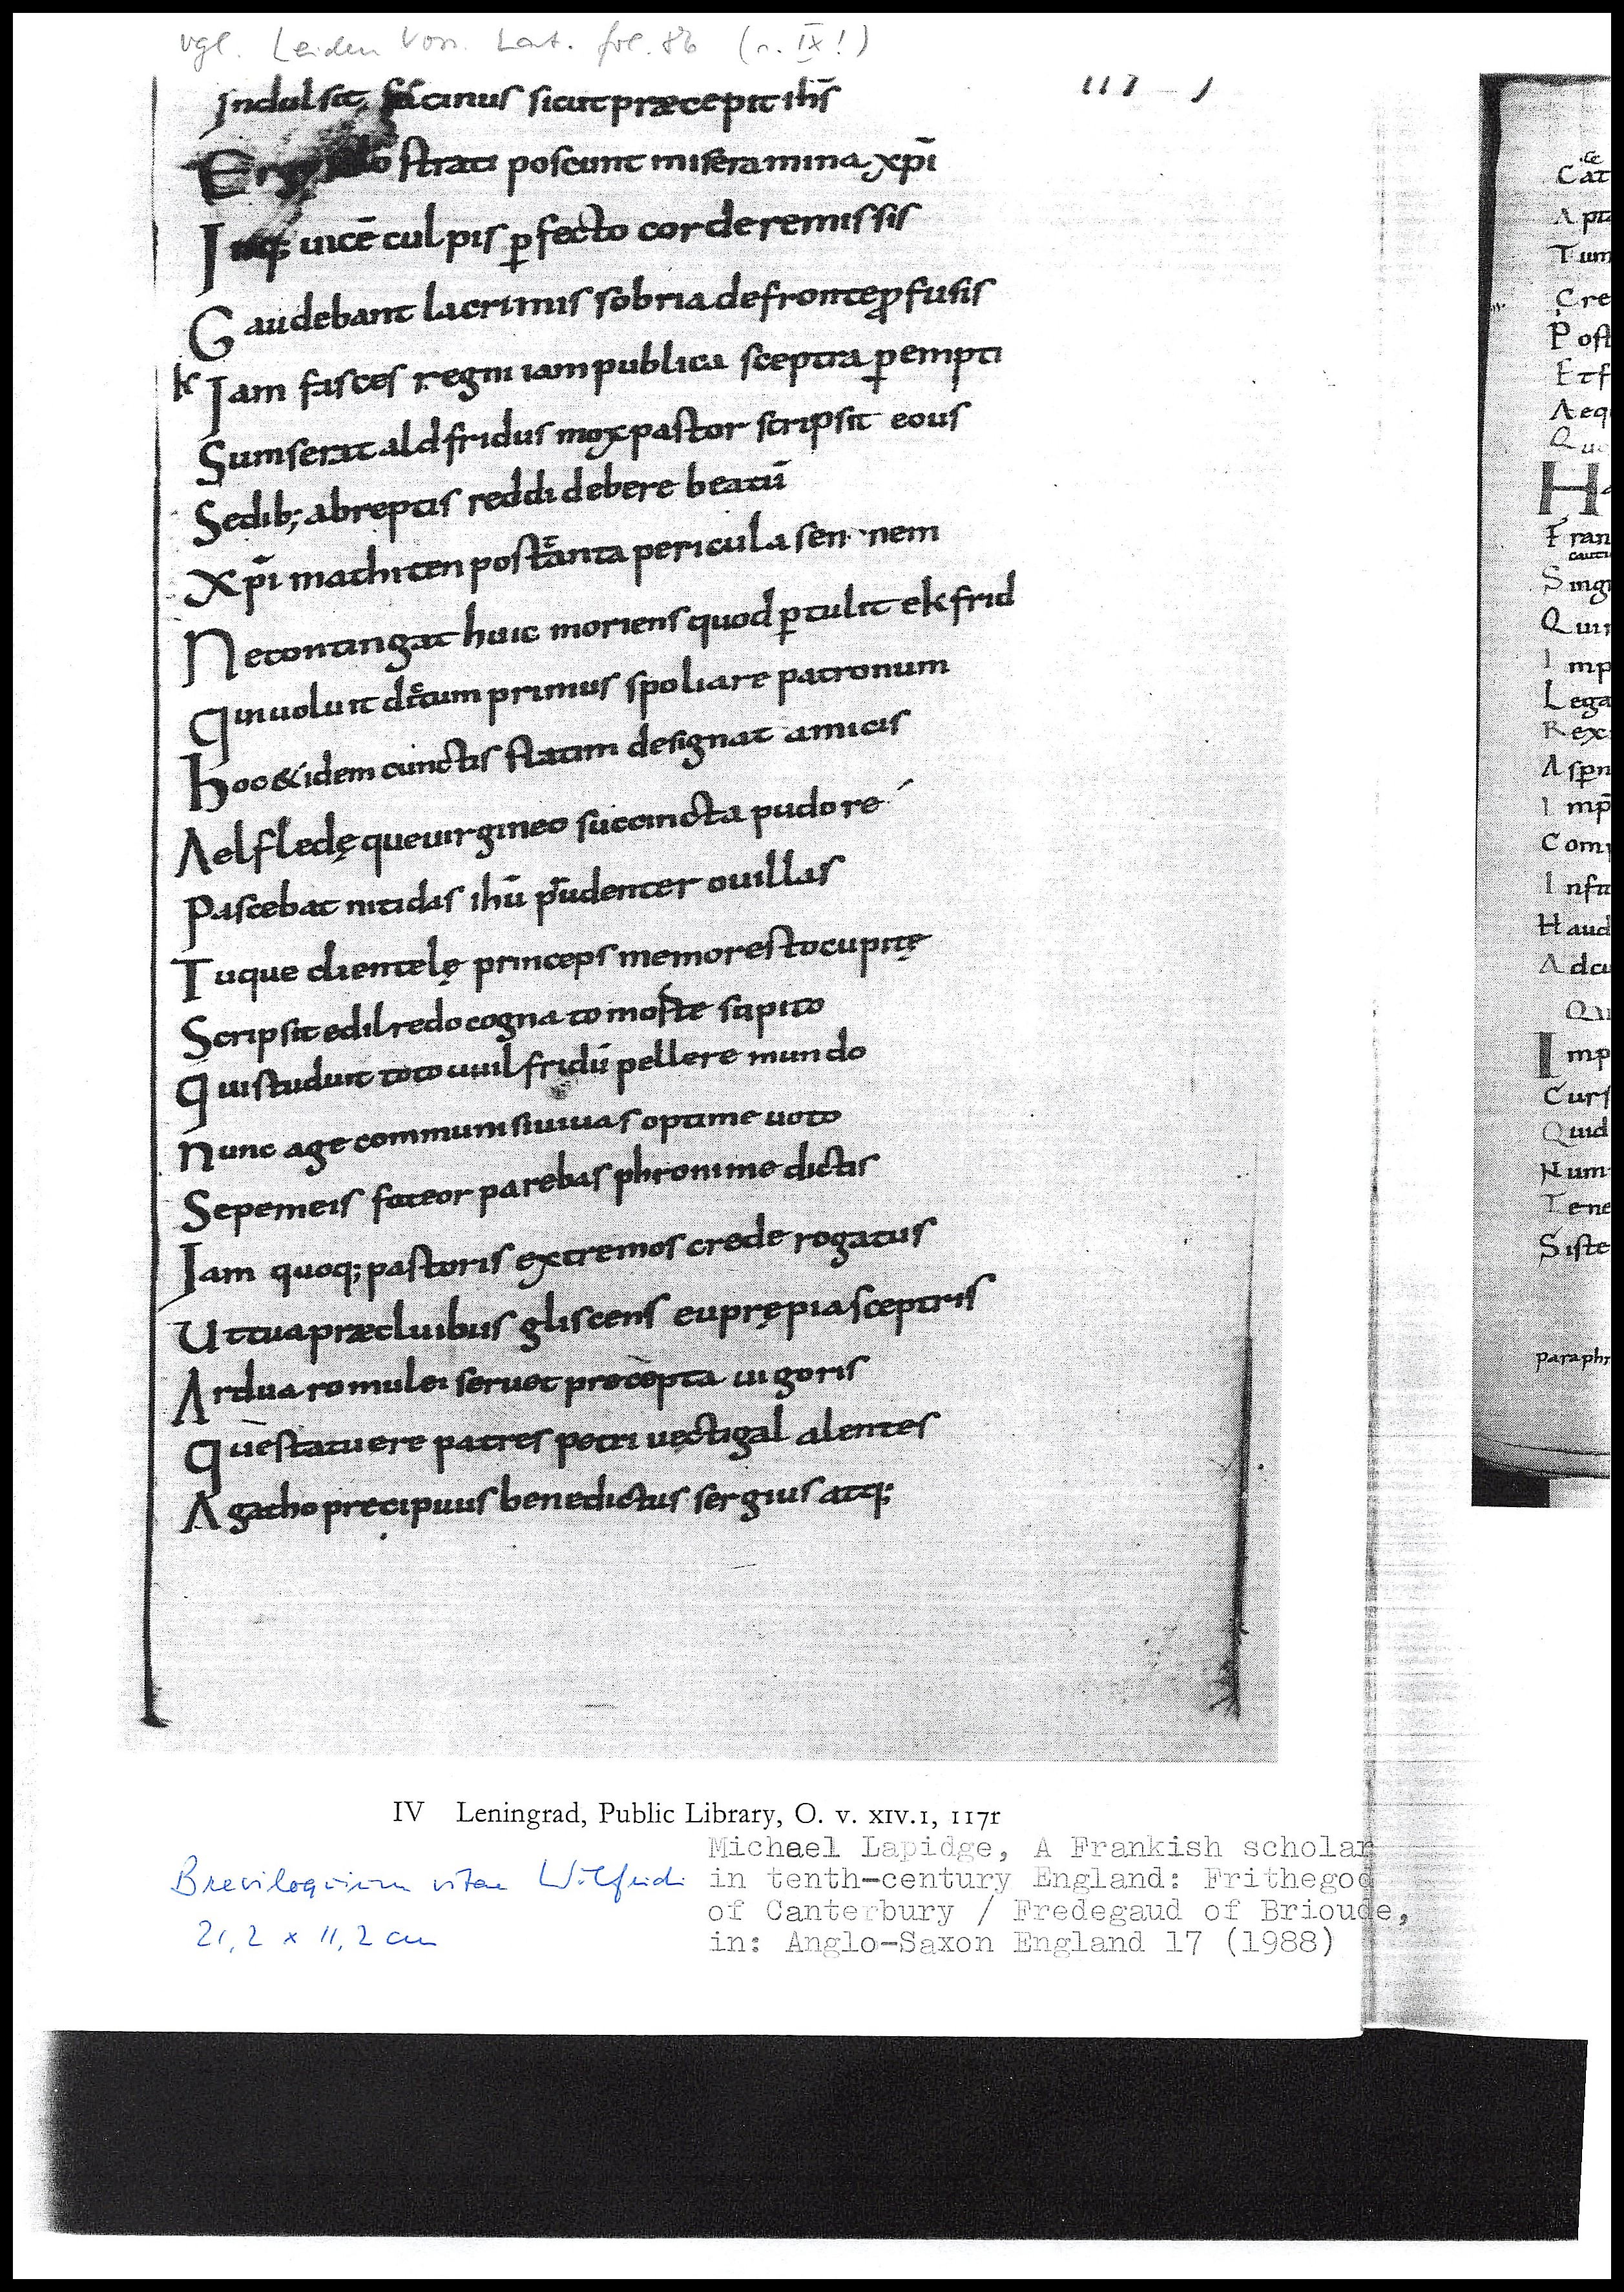 vgl. Leiden Voss. Lat. fol. 86 (s. IX!)
Indulsit facinus sicut præcepit ihs̄
strati poscunt miseramina xp̄i
uicē culpis ꝑfecto corde remissis
Gaudebant lacrimis sobria de fronte ꝓfusis
k Iam fasces regni iam publica sceptra ꝑempti
Sumserat aldfridus mox pastor scripsit eous
Sedib; abreptis reddi debere beatū
Xp̄i mathiten post tanta pericula sen nem
Ne contingat huic moriens quod ꝑtulit ekfrid
Qui uoluit primus spoliare patronum
Hoc & idem cunctis statim designat amicis
Aelfledę que uirgineo succincta pudore
Pascebat nitidas ihū prudenter ouillas
Tuque clientelę princeps memor esto cupitę
Scripsit edilredo cognato moste sapito
Qui studuit toto uuilfridū pellere mundo
Nunc age communi si uiuas optime uoto
Sepe meis fateor parebas phronime dictis
Iam quoq; pastoris extremos crede rogatus
Ut tua præcluibus gliscens euprępia sceptris
Ardua romulei seruet precepta uigoris
Quę statuere patres petri uectigal alentes
Agatho precipuus benedictus sergius atq;
IV Leningrad, Public Library, O. v. XIV.1, 117r
Michael Lapidge, A Frankish scholar
in tenth-century England: Frithegod
of Canterbury / Fredegaud of Brioude,
in: Anglo-Saxon England 17 (1988)
Breviloquium vitae Wilfridi
21,2 x 11,2 cm
Cat
Apta
Tum
Cre
Post
Et f
Aeq
Quo
Ha
Fran
Sing
Quin
Imp
Lega
Rex
Aspn
Imp̄
Com
Infa
Haud
Adcu
Qu
Imp
Curs
Quid
Num
Tene
Siste
paraphr